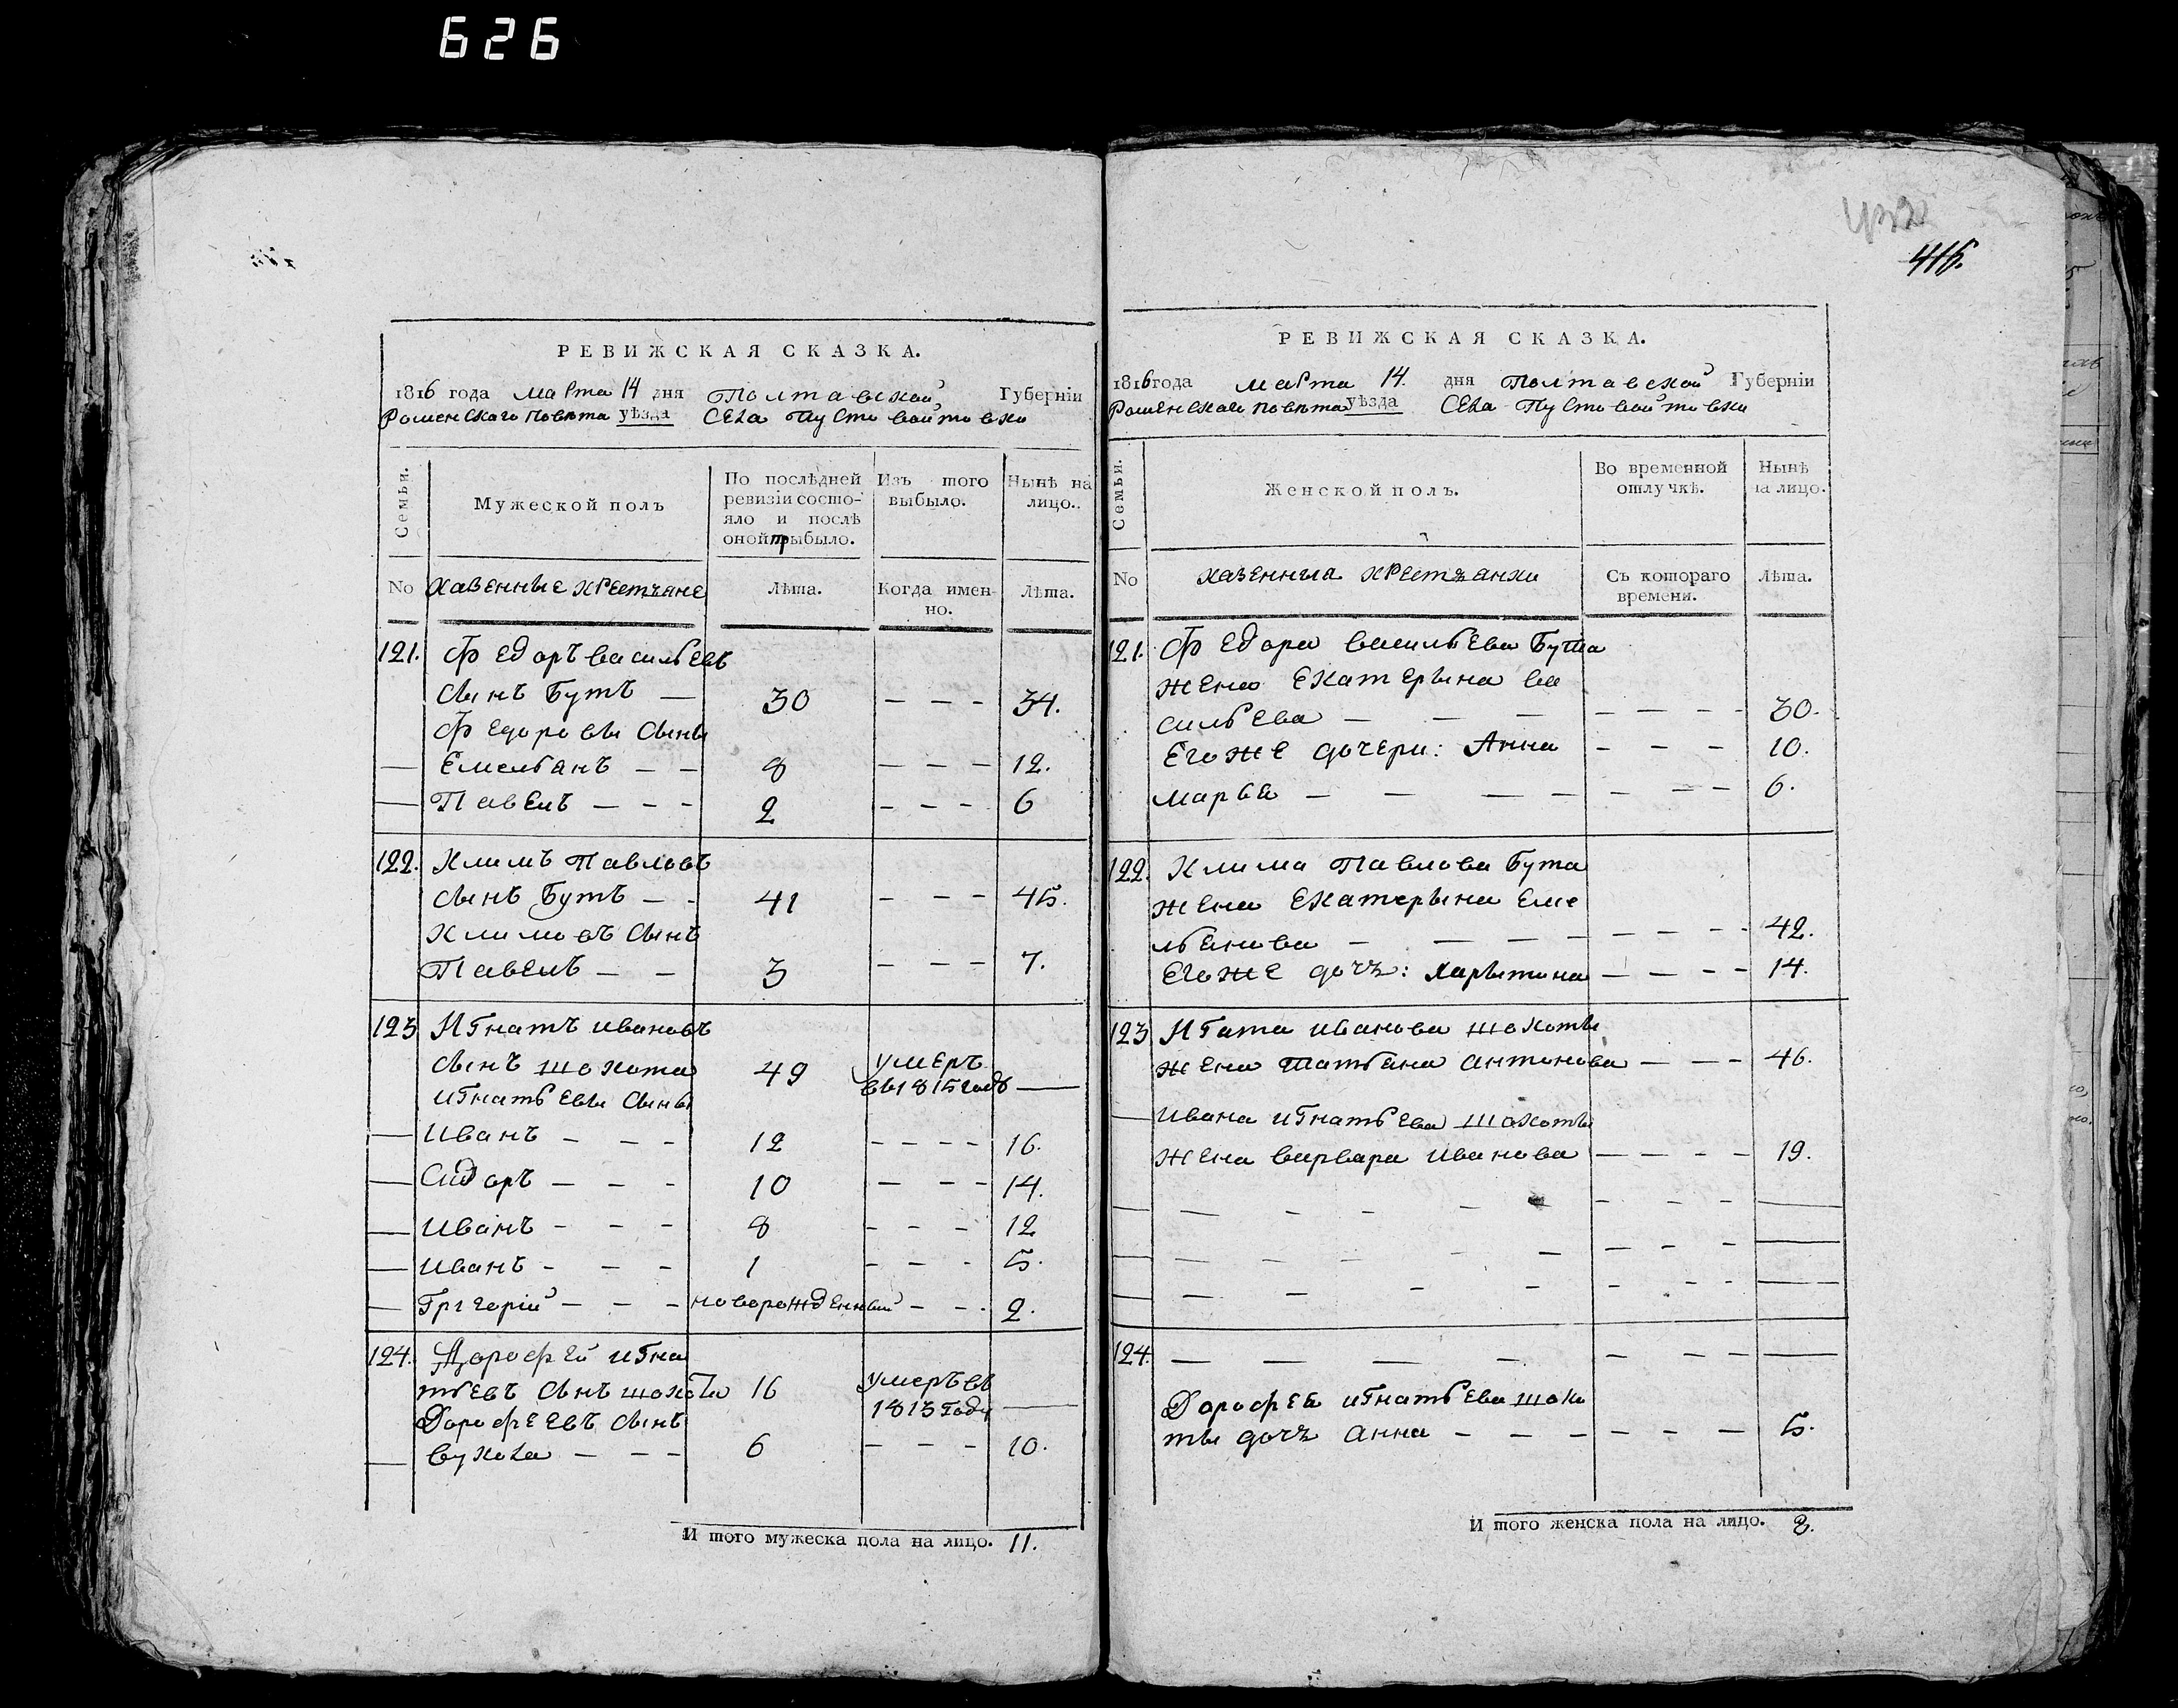 626
415.
РЕВИЖСКАЯ СКАЗКА.
1816 года марта 14 дня Полтавской Губерніи
Роменскаго повѣта уѣзда села Пустовойтовки
Семьи.
Мужеской полъ
По послѣдней ревизіи состо-
яло и послѣ
оной прыбыло.
Изъ того
выбыло.
Нынѣ на
лицо.
No казенные крестъяне
Лѣта.
Когда имен-
но.
Лѣта.
121. Федоръ васильевъ
сынъ Бутъ — 30 — — — 34.
Федоровы сыны
— Емельянъ — — 8 — — — 12.
— Павелъ — — — 2 — — — 6
122. Климъ Павловъ
сынъ Бутъ — — 41 — — — 45.
Климовъ сынъ
Павелъ — — 3 — — — 7.
123 Игнатъ ивановъ
сынъ шокота 49 умеръ
въ 1815 годѣ —
игнатьевы сыны
— иванъ — — — 12 — — — — 16.
— Сидоръ — — — 10 — — — 14.
— иванъ — — — 8 — — — 12
— иванъ — — — 1 — — — 5.
— Григорій — — — новорожденный — — 2.
124. Дорофей игна
тьевъ сынъ шокота 16 умеръ въ
1813 году —
Дорофеевъ сынъ
— вукола — — — 6 — — — 10.
И того мужеска пола на лицо. 11.
РЕВИЖСКАЯ СКАЗКА.
1816 года марта 14. дня Полтавской Губерніи
Роменскаго повѣта уѣзда села Пустовойтовки
Семьи.
Женской полъ.
Во временной
отлучкѣ.
Нынѣ
на лицо.
No казенныя крестъянки
Съ котораго
времени.
Лѣта.
121. Федора васильева Бута
жена Екатерына ва
сильева — — — — — — — 30.
Егоже дочери: Анна — — — 10.
марья — — — — — — — 6.
122. Клима Павлова Бута
жена Екатерына Еме
льянова — — — — — — — — 42.
Егоже дочъ: харытина — — — — 14.
123 Игата иванова шокоты
жена татьяна антонова — — — 46.
— ивана игнатьева шокоты
жена варвара иванова — — — — 19.
124. — — — — — — — —
Дорофея игнатьева шоко
ты дочъ анна — — — — — — 5.
И того женска пола на лицо. 8.